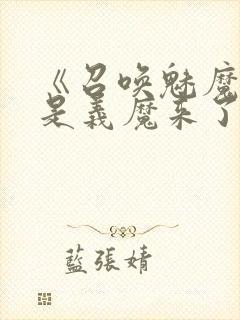 《召唤魅魔
是義魔来了
藍張婧